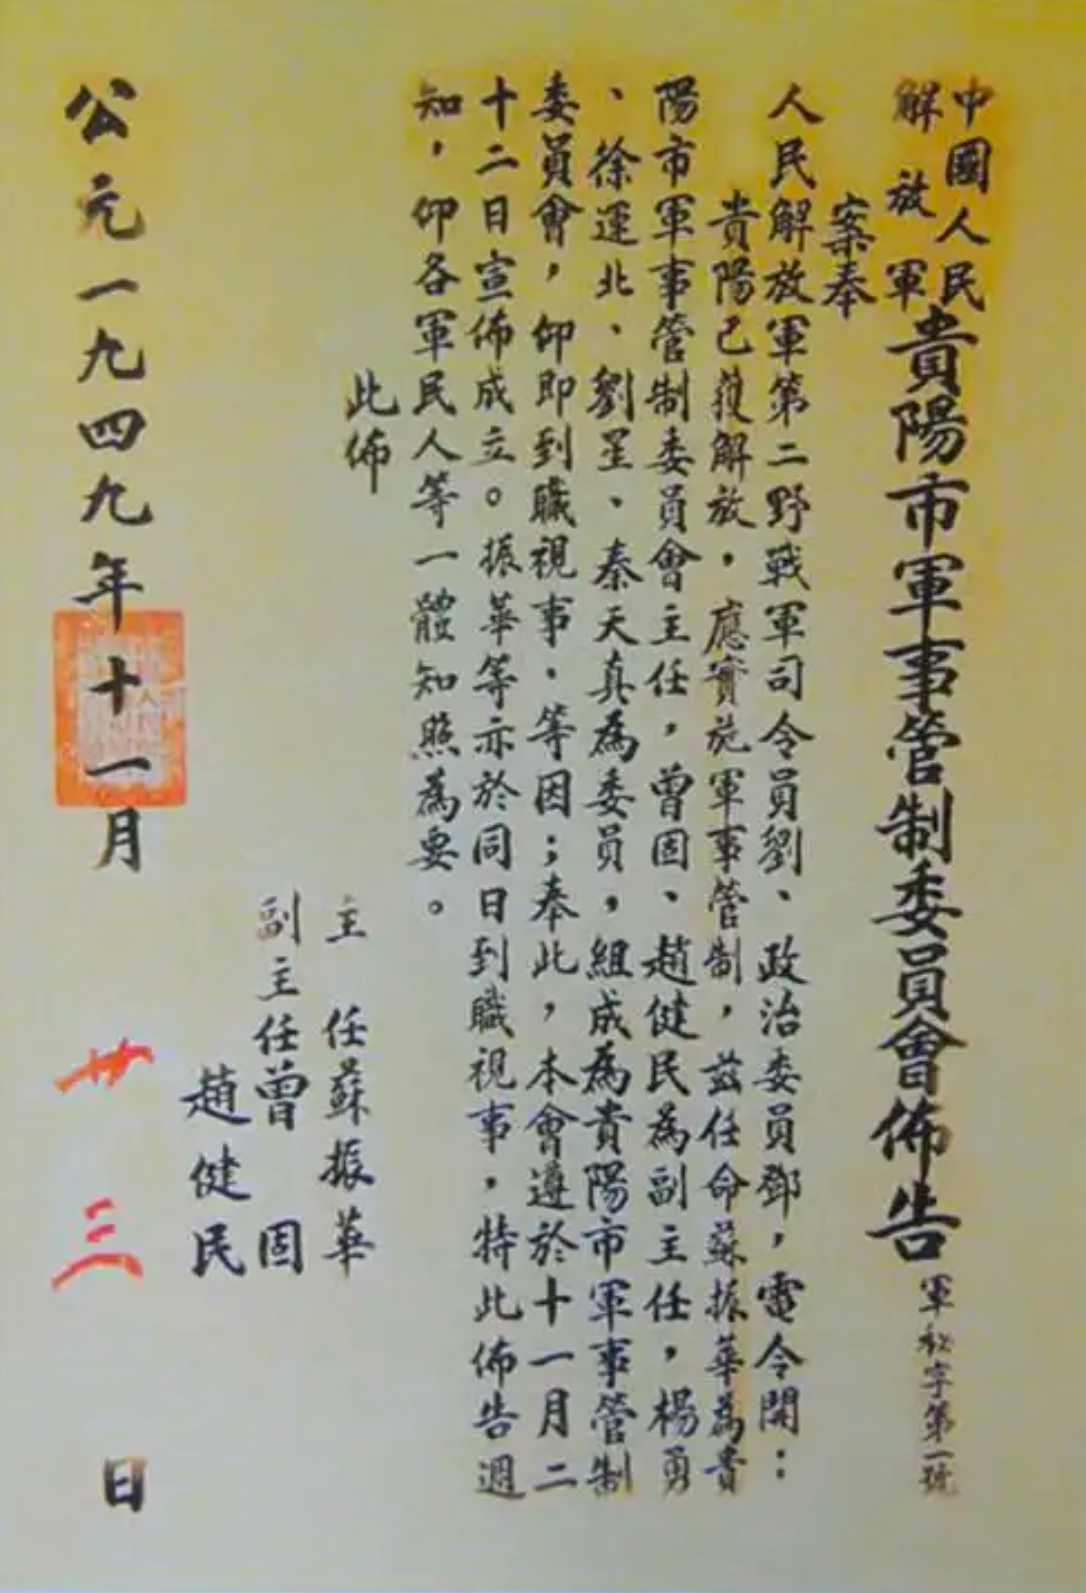 中國人民
解放軍
貴陽市軍事管制委員會佈告
軍秘字第一號
案奉
人民解放軍第二野戰軍司令員劉、政治委員鄧,電令開:
貴陽已獲解放,應實施軍事管制,茲任命蘇振華為貴
陽市軍事管制委員會主任,曾固、趙健民為副主任,楊勇
、徐運北、劉星、秦天真為委員,組成為貴陽市軍事管制
委員會,仰即到職視事、等因;奉此,本會遵於十一月二
十二日宣佈成立。振華等亦於同日到職視事,特此佈告週
知,仰各軍民人等一體知照為要。
此佈
主任蘇振華
副主任曾固
趙健民
公元一九四九年十一月廿三日